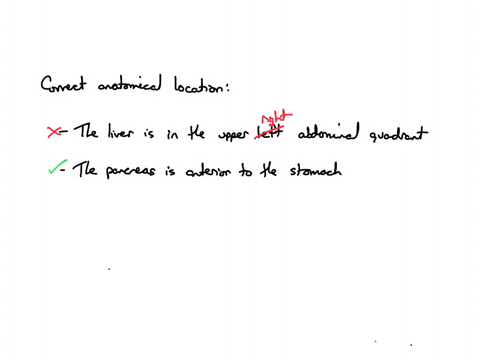 Correct anatomical location:
right
x - The liver is in the upper left abdominal quadrant
✓ - The pancreas is anterior to the stomach